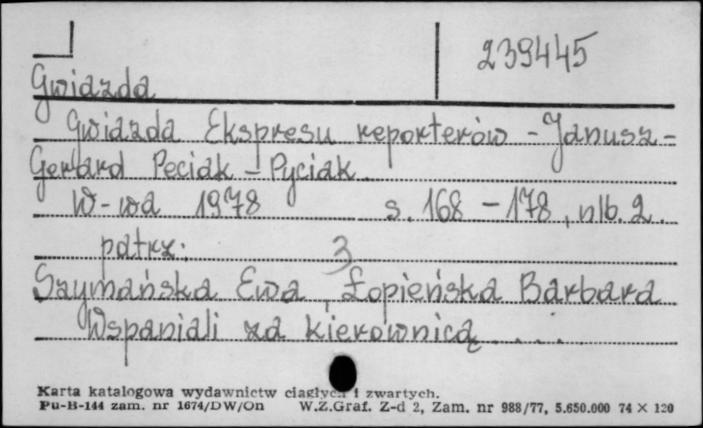 239445
Gwiazda
Gwiazda Ekspresu reporterów - Janusz -
Gerard Peciak - Pyciak
W-wa 1978 s. 168 - 178, nlb. 2.
patrz: 3
Szymańska Ewa, Łopieńska Barbara
Wspaniali za kierownicą . . . . .
Karta katalogowa wydawnictw ciągłych i zwartych.
Pu-B-144 zam. nr 1674/DW/On W.Z.Graf. Z-d 2, Zam. nr 988/77, 5.650.000 74 × 120